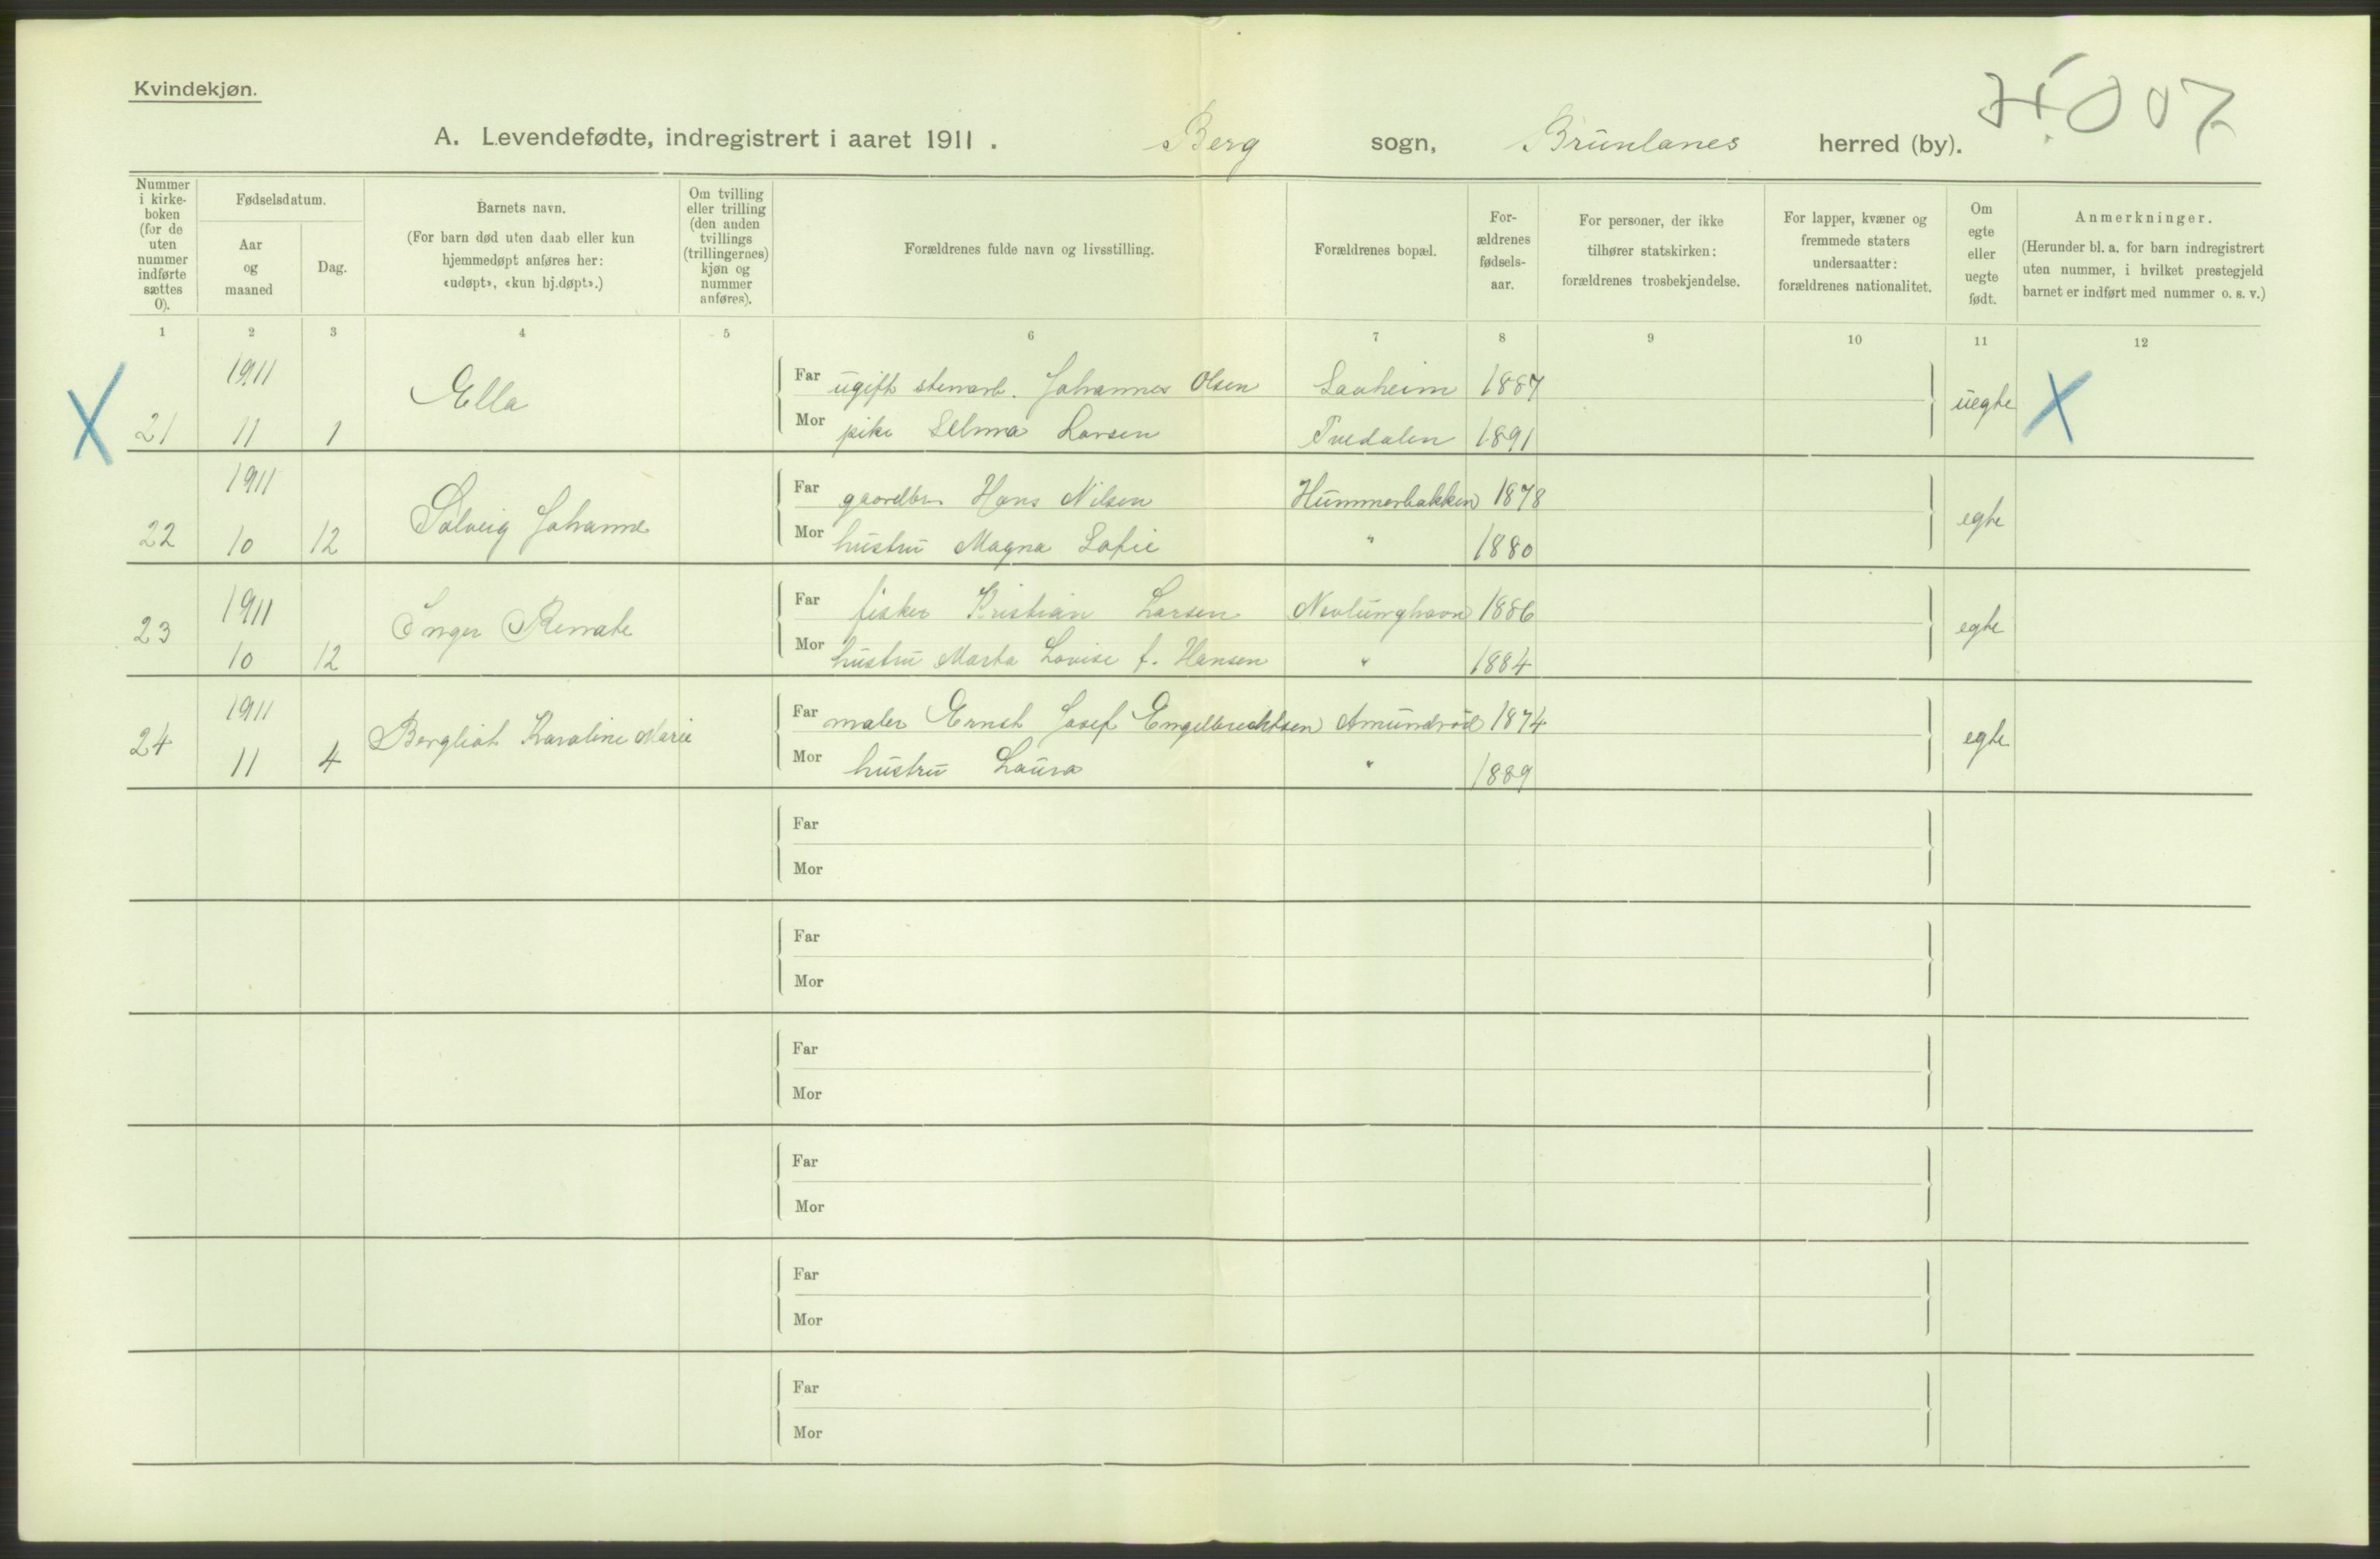 Kvindekjøn.
A. Levendefødte, indregistrert i aaret 1911. Berg sogn, Brunlanes herred (by).
Nummer i kirke-boken (for de uten nummer indførte sættes 0).
Fødselsdatum.
Aar og maaned
Dag.
Barnets navn.
(For barn død uten daab eller kun hjemmedøpt anføres her: «udøpt», «kun hj.døpt».)
Om tvilling eller trilling (den anden tvillings (trillingernes) kjøn og nummer anføres).
Forældrenes fulde navn og livsstilling.
Forældrenes bopæl.
For-ældrenes fødsels-aar.
For personer, der ikke tilhører statskirken: forældrenes trosbekjendelse.
For lapper, kvæner og fremmede staters undersaatter: forældrenes nationalitet.
Om egte eller uegte født.
Anmerkninger.
(Herunder bl. a. for barn indregistrert uten nummer, i hvilket prestegjeld barnet er indført med nummer o. s. v.)
1 2 3 4 5 6 7 8 9 10 11 12
X 21 1911 11 1 Ella uegte X
Far ugift stenarb. Johannes Olsen 1887
Mor pike Selma Larsen Tvedalen 1891
22 1911 10 12 Solveig Johanne egte
Far gaardbr. Hans Nilsen Hummerbakken 1878
Mor hustru Magna Sofie " 1880
23 1911 10 12 Inger Renate egte
Far fisker Kristian Larsen Nevlunghavn 1886
Mor hustru Marta Lovise f. Hansen " 1884
24 1911 11 4 Bergliot Karoline Marie egte
Far maler Ernst Josef Engelbrechtsen Amundrød 1874
Mor hustru Laura " 1889
Far
Mor
Far
Mor
Far
Mor
Far
Mor
Far
Mor
Far
Mor